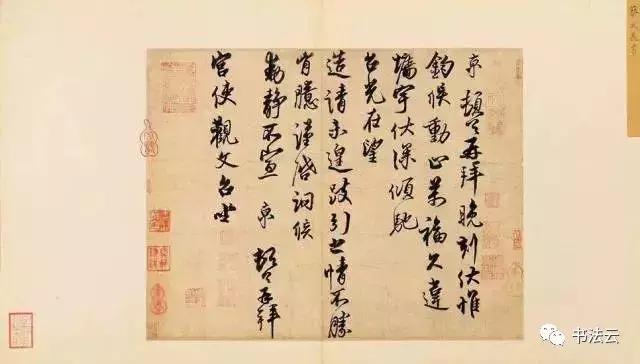 京 頓首再拜晚刻伏惟
鈞候動止萬福久違
墻宇伏深傾馳
台光在望
造請未遑跂引之情不勝
胷臆謹啓詞候
動靜不宣 京 頓首再拜
宮使觀文台坐
书法云